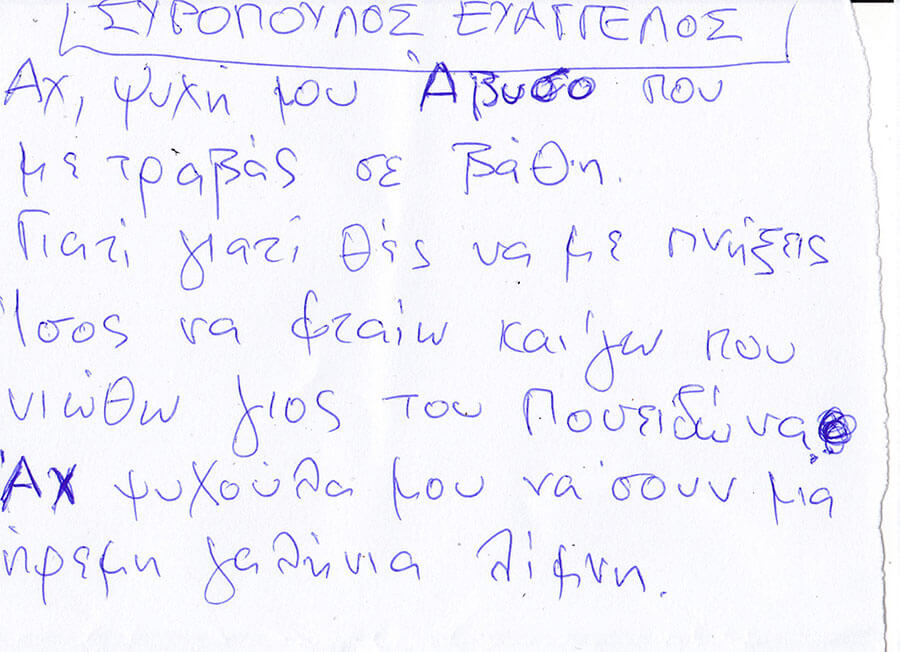 ΣΥΡΟΠΟΥΛΟΣ ΕΥΑΓΓΕΛΟΣ
Αχ, ψυχή μου Άβυσο που
με τραβάς σε βάθη.
Γιατί γιατί θές να με πνήξεις
Ίσος να φταίω και γω που
νιώθω γιος του Ποσειδώνα
Αχ ψυχούλα μου να σουν μια
ήρεμη γαλήνια λίμνη.